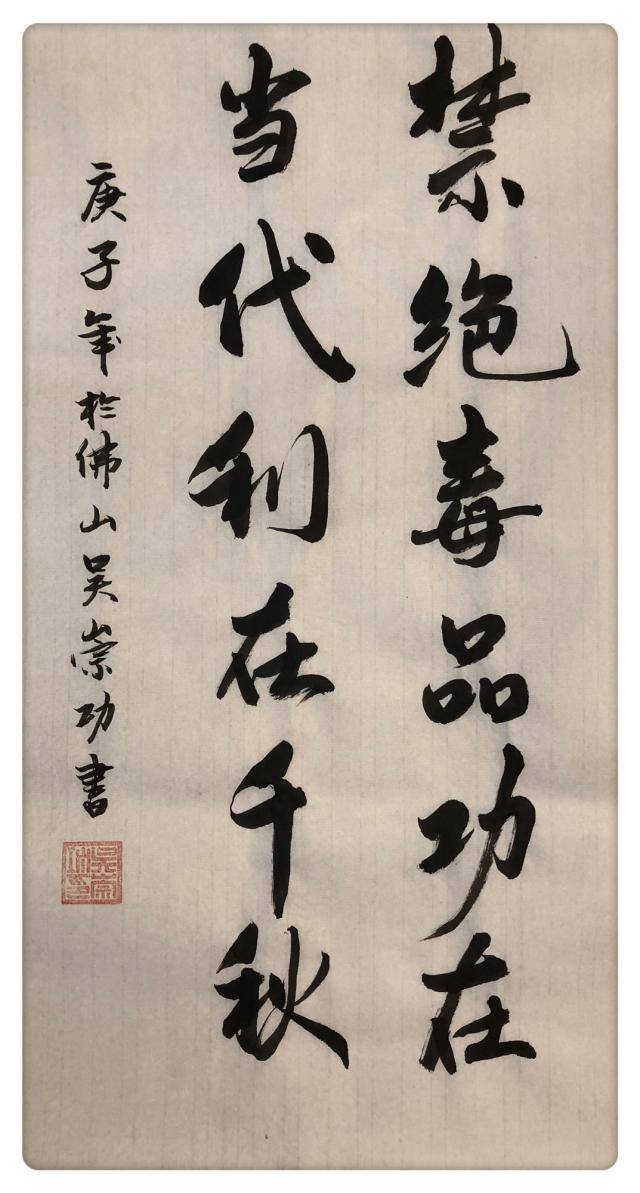 禁绝毒品功在
当代利在千秋
庚子年於佛山吴崇功书